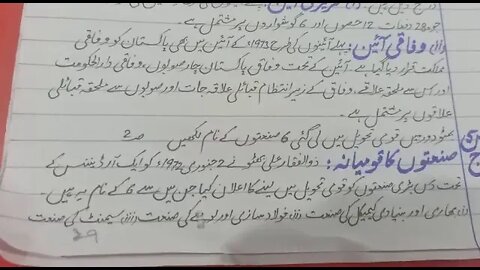 جو 28 دفعات 12 حصوں اور 6 گوشواروں پر مشتمل ہے۔
(ii) وفاقی آئین: پہلے آئینوں کی طرح 1973ء کے آئین میں بھی پاکستان کو وفاقی
مملکت قرار دیا گیا ہے۔ آئین کے تحت وفاق پاکستان چار صوبوں، وفاقی دارالحکومت
اور اس سے ملحقہ علاقے، وفاق کے زیر انتظام قبائلی علاقہ جات اور صوبوں سے ملحقہ قبائلی
علاقوں پر مشتمل ہے۔
بھٹو دور میں قومی تحویل میں لی گئی 6 صنعتوں کے نام لکھیں
صنعتوں کا قومیانہ: ذوالفقار علی بھٹو نے 2 جنوری 1972ء کو ایک آرڈیننس کے
تحت دس بڑی صنعتوں کو قومی تحویل میں لینے کا اعلان کیا جن میں سے 6 کے نام یہ ہیں۔
(i) بھاری اور بنیادی کیمیکل کی صنعت (ii) فولاد سازی اور لوہے کی صنعت (iii) سیمنٹ کی صنعت